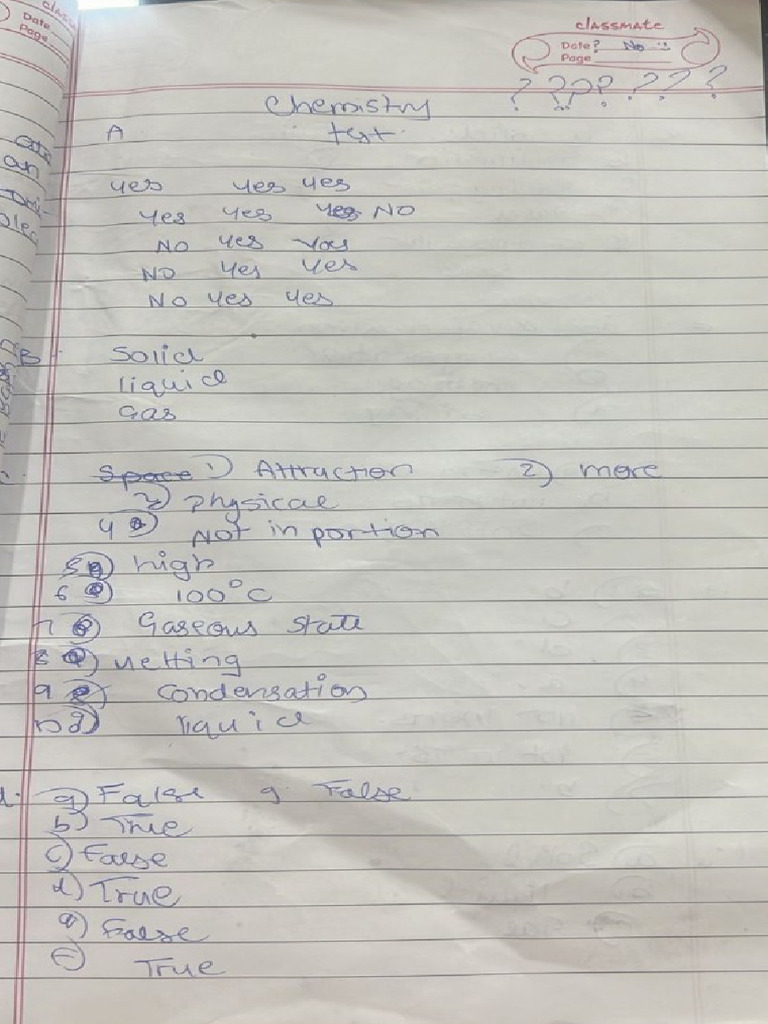 classmate
Date
Page
CLASSMATE
Date ? No :)
Page
? ???? ??? ?
Chemistry
A test.
yes yes yes
yes yes yes NO
NO yes
NO yes yes
NO yes yes
B Solid
liquid
Gas
Space 1) Attraction 2) more
3) physical
4 Not in portion
5 high
6 100°C
7 Gaseous state
8 melting
9 condensation
10 liquid
a) False g False
b) True
c) False
d) True
e) False
f) True